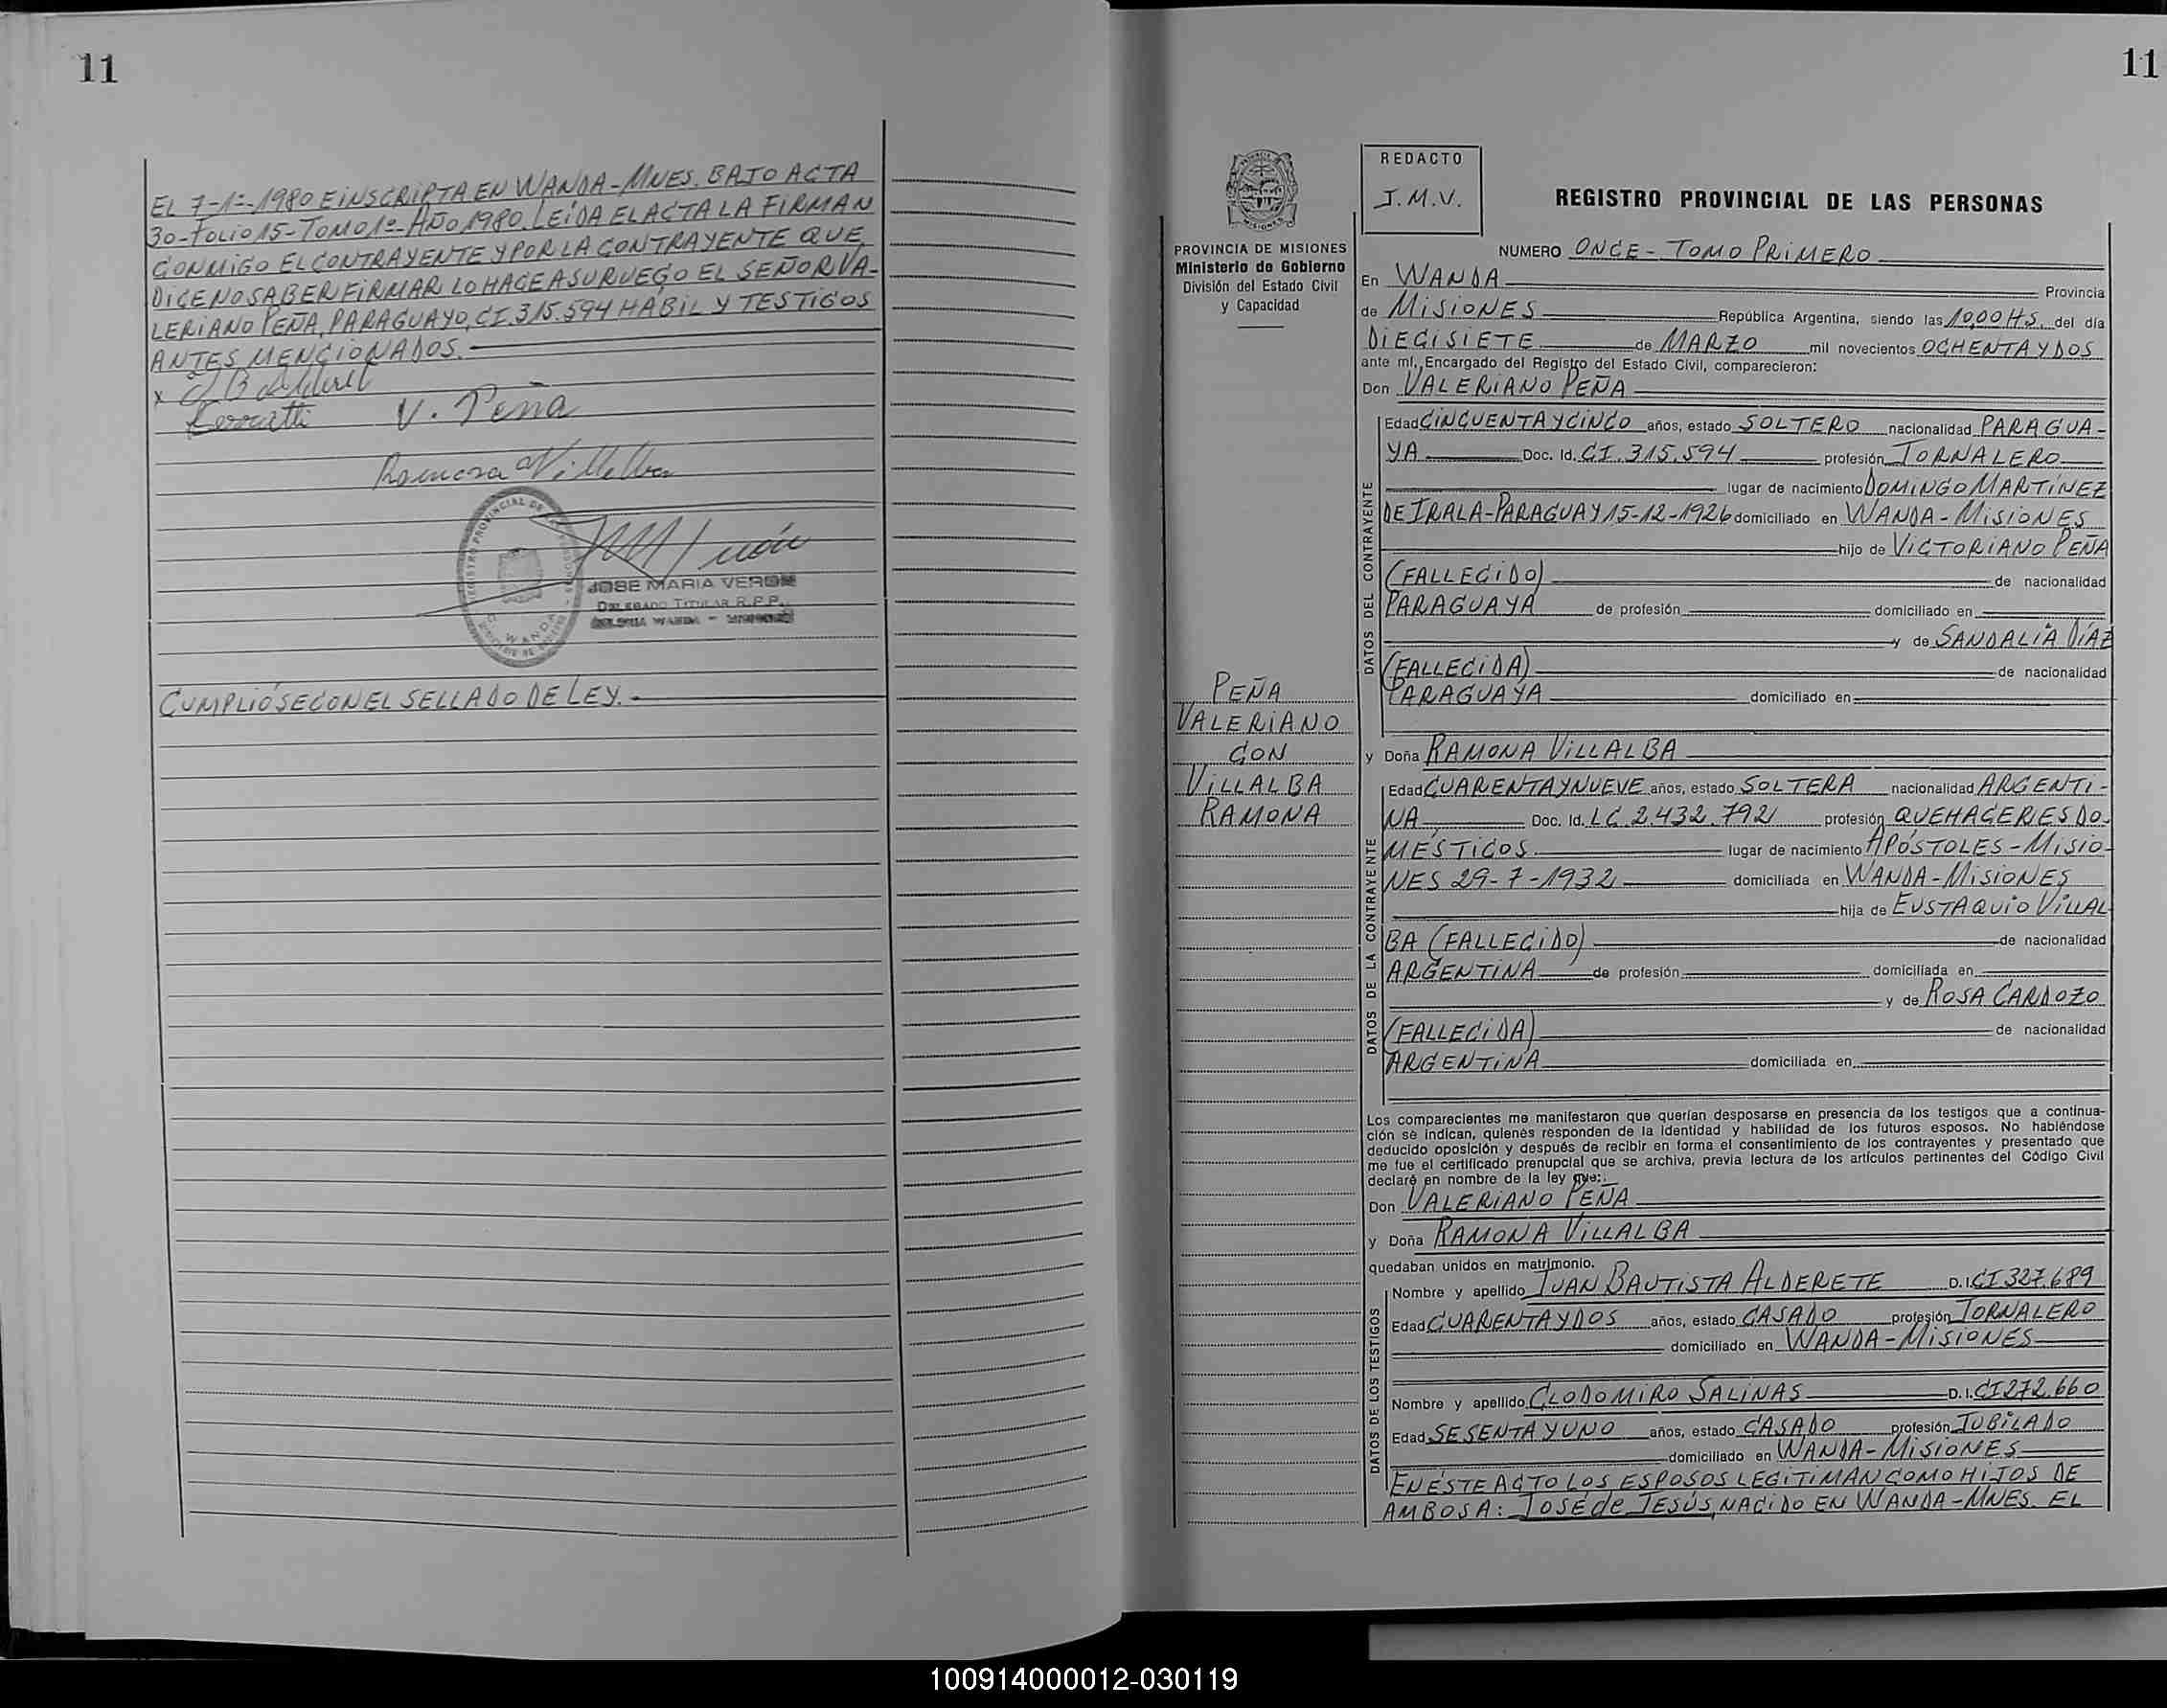 11
EL 7-1º-1980 E INSCRIPTA EN WANDA-MNES. BAJO ACTA
30-FOLIO 15-TOMO 1º-AÑO 1980. LEÍDA EL ACTA LA FIRMAN
CONMIGO EL CONTRAYENTE Y POR LA CONTRAYENTE QUE
DICE NO SABER FIRMAR LO HACE A SU RUEGO EL SEÑOR VA-
LERIANO PEÑA, PARAGUAYO, CI.315.594 HÁBIL Y TESTIGOS
ANTES MENCIONADOS.
x
V. Peña
Ramona Villalba
JOSE MARIA VERON
DELEGADO TITULAR R.P.P.
WANDA - MISIONES
CUMPLIÓSE CON EL SELLADO DE LEY.
11
PROVINCIA DE MISIONES
Ministerio de Gobierno
División del Estado Civil
y Capacidad
PEÑA
VALERIANO
CON
VILLALBA
RAMONA
REDACTO
J.M.V.
REGISTRO PROVINCIAL DE LAS PERSONAS
NUMERO ONCE - TOMO PRIMERO
En WANDA Provincia
de MISIONES República Argentina, siendo las 10,00 HS. del día
DIECISIETE de MARZO mil novecientos OCHENTA Y DOS
ante mí, Encargado del Registro del Estado Civil, comparecieron:
Don VALERIANO PEÑA
DATOS DEL CONTRAYENTE
Edad CINCUENTA Y CINCO años, estado SOLTERO nacionalidad PARAGUA-
YA Doc. Id. CI. 315.594 profesión JORNALERO
lugar de nacimiento DOMINGO MARTÍNEZ
DE IRALA-PARAGUAY 15-12-1926 domiciliado en WANDA-MISIONES
hijo de VICTORIANO PEÑA
(FALLECIDO) de nacionalidad
PARAGUAYA de profesión domiciliado en
y de SANDALIA DÍAZ
(FALLECIDA) de nacionalidad
PARAGUAYA domiciliado en
y Doña RAMONA VILLALBA
DATOS DE LA CONTRAYENTE
Edad CUARENTA Y NUEVE años, estado SOLTERA nacionalidad ARGENTI-
NA Doc. Id. LC 2.432.792 profesión QUEHACERES DO-
MÉSTICOS lugar de nacimiento APÓSTOLES-MISIO-
NES 29-7-1932 domiciliada en WANDA-MISIONES
hija de EUSTAQUIO VILLAL
BA (FALLECIDO) de nacionalidad
ARGENTINA de profesión domiciliada en
y de ROSA CARDOZO
(FALLECIDA) de nacionalidad
ARGENTINA domiciliada en
Los comparecientes me manifestaron que querían desposarse en presencia de los testigos que a continua-
ción se indican, quienes responden de la identidad y habilidad de los futuros esposos. No habiéndose
deducido oposición y después de recibir en forma el consentimiento de los contrayentes y presentado que
me fue el certificado prenupcial que se archiva, previa lectura de los artículos pertinentes del Código Civil
declaré en nombre de la ley que:
Don VALERIANO PEÑA
y Doña RAMONA VILLALBA
quedaban unidos en matrimonio.
DATOS DE LOS TESTIGOS
Nombre y apellido JUAN BAUTISTA ALDERETE D.I. CI 327.689
Edad CUARENTA Y DOS años, estado CASADO profesión JORNALERO
domiciliado en WANDA-MISIONES
Nombre y apellido CLODOMIRO SALINAS D.I. CI 272.660
Edad SESENTA Y UNO años, estado CASADO profesión JUBILADO
domiciliado en WANDA-MISIONES
EN ÉSTE ACTO LOS ESPOSOS LEGITIMAN COMO HIJOS DE
AMBOS A: JOSÉ de JESÚS, NACIDO EN WANDA-MNES. EL
100914000012-030119